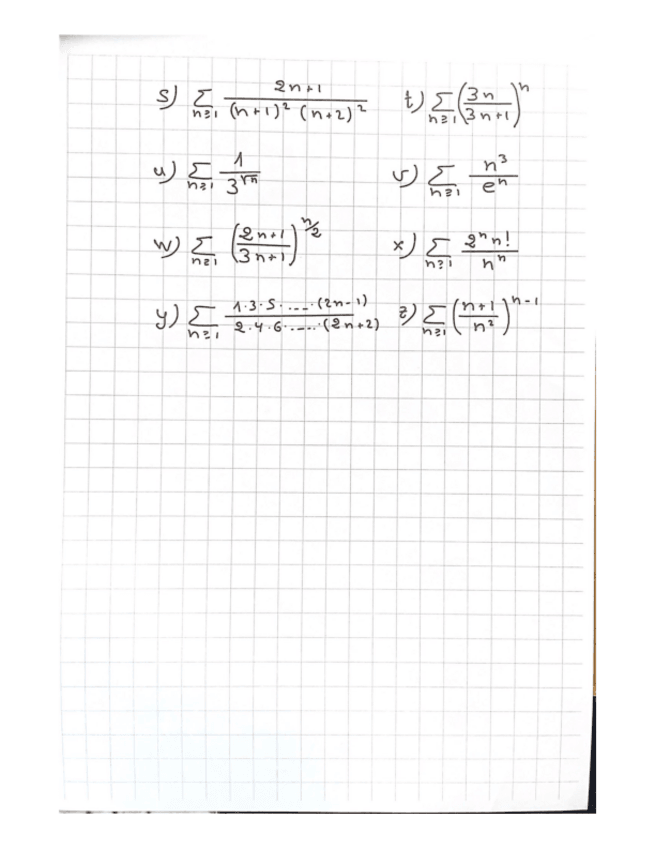 s) ∑_{n≥1} (2n+1)/((n+1)² (n+2)²) t) ∑_{n≥1} (3n/(3n+1))^n
u) ∑_{n≥1} 1/3^{√n} v) ∑_{n≥1} n³/e^n
w) ∑_{n≥1} ((2n+1)/(3n+1))^{n/2} x) ∑_{n≥1} 2^n n!/n^n
y) ∑_{n≥1} (1·3·5·....·(2n-1))/(2·4·6·....·(2n+2)) z) ∑_{n≥1} ((n+1)/n²)^{n-1}